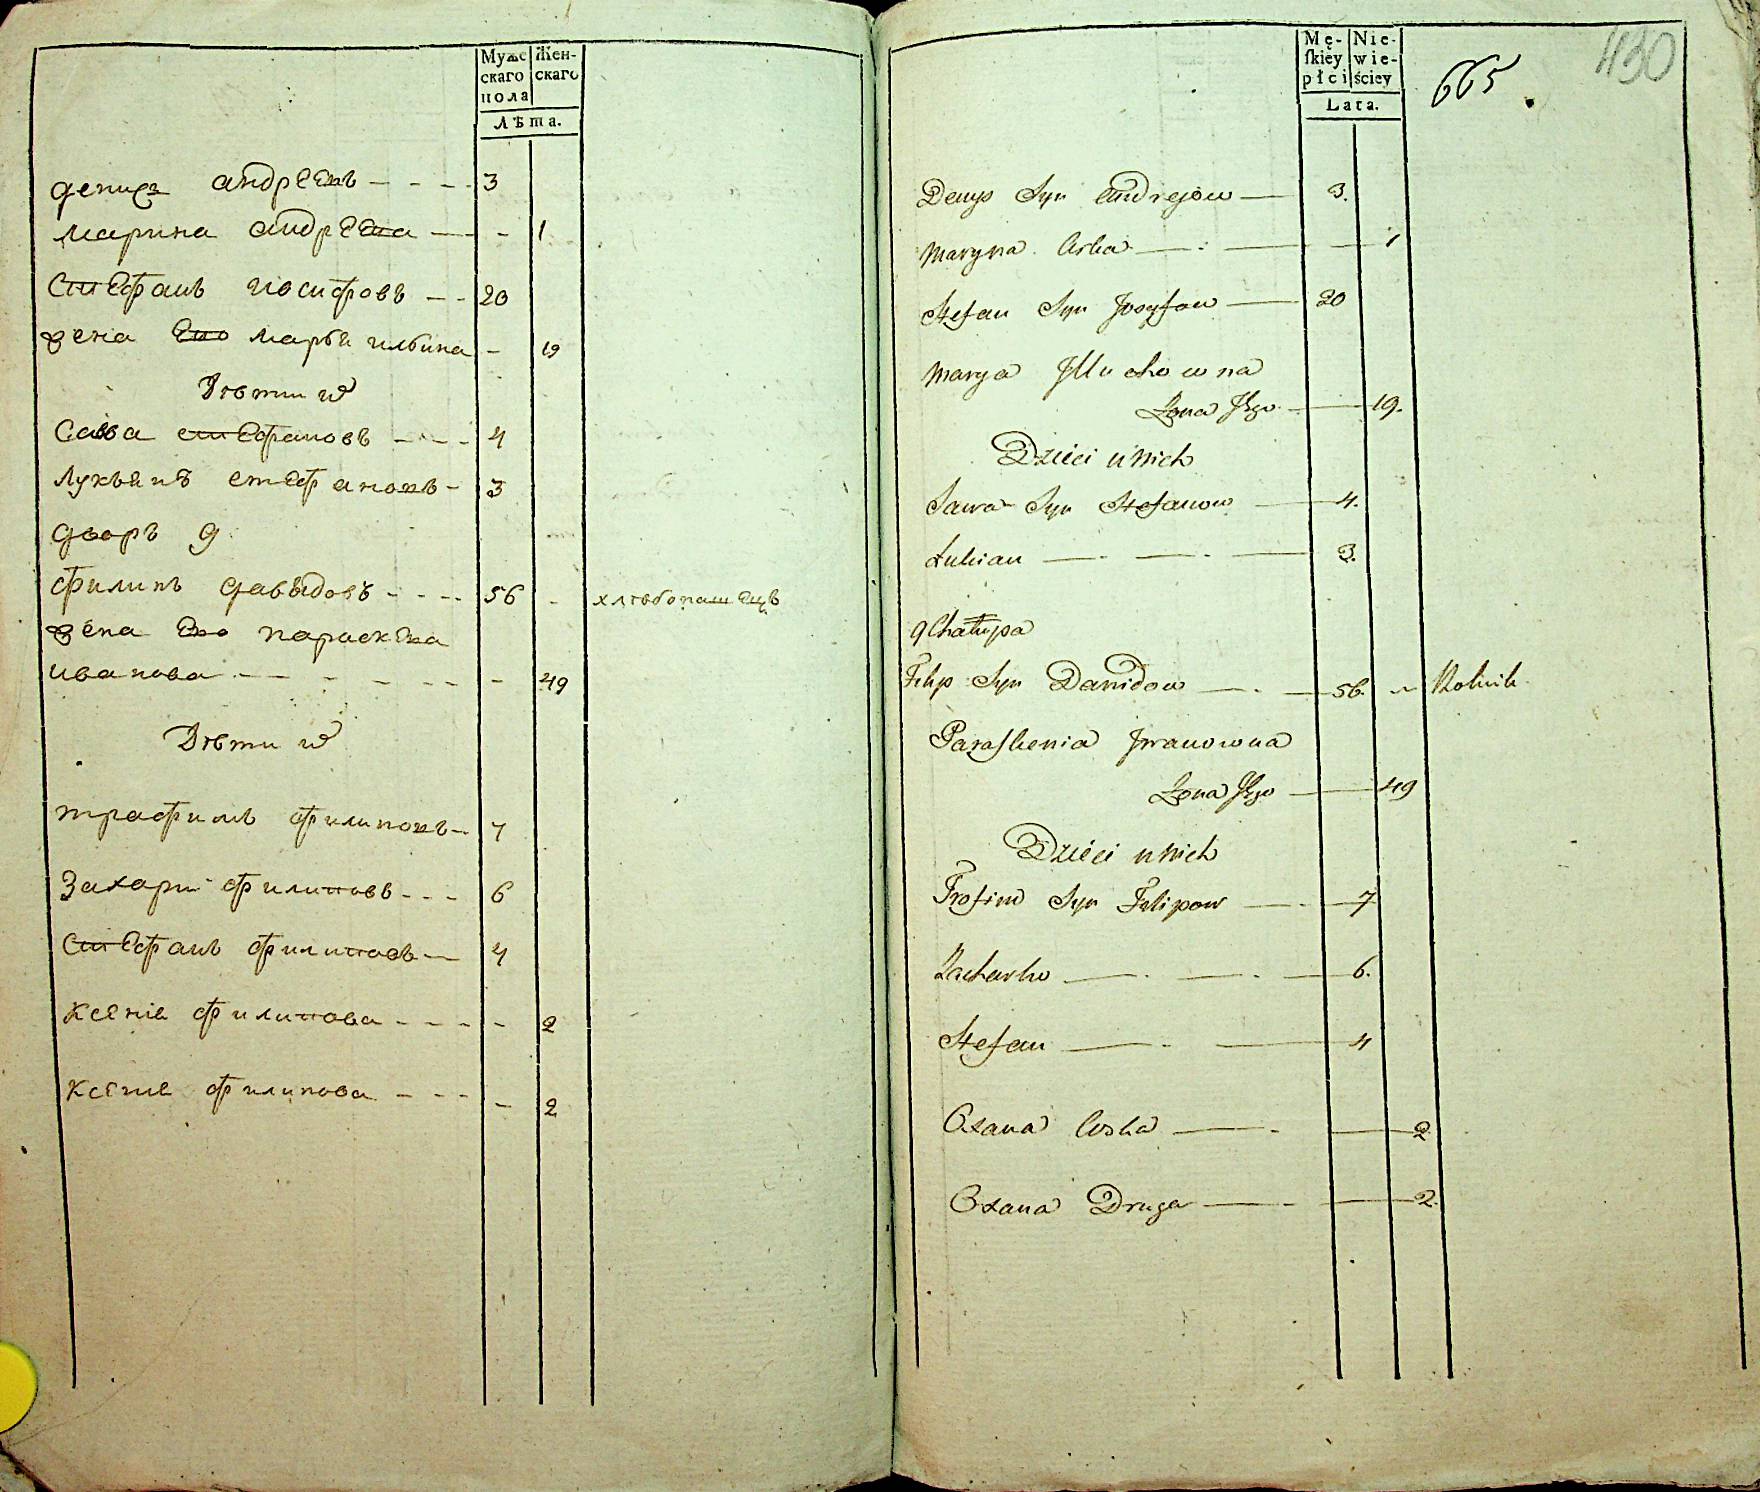 Муже Жен-
скаго скаго
пола
Лѣта.
денисъ андреевъ - - - - 3
марина андреева - - 1
Стефанъ иосифовъ - - 20
жена его марья ильина - 19
Дѣти их
Савва стефановъ - - - 4
лукьянъ стефановъ - 3
дворъ 9
филипъ давыдовъ - - - - 56 - хлѣбопашецъ
жена его параскева
иванова - - - - - - - 49
Дѣти их
трафимъ филиповъ - 7
Захари филиповъ - - - 6
Стефанъ филиповъ - 4
ксения филипова - - - - - 2
ксения филипова - - - - 2
Mę- Nie-
ſkiey wie-
płci ściey
Lata.
665
430
Denys Syn Andrejow — 3.
Maryna Curka — 1
Stefan Syn Jozyfow — 20
Marya Jlluchowna
Zona Jego — 19.
Dzieci u Nich
Sawa Syn Stefanow — 4.
Łukian — 3.
9 Chałupa
Filip Syn Dawidow — 56. Rolnik
Paraſkewia Jwanowna
Zona Jego — 49
Dzieci u Nich
Trofim Syn Filipow — 7
Zacharko — 6.
Stefan — 4
Oxana Curka — 2
Oxana Druga — 2.